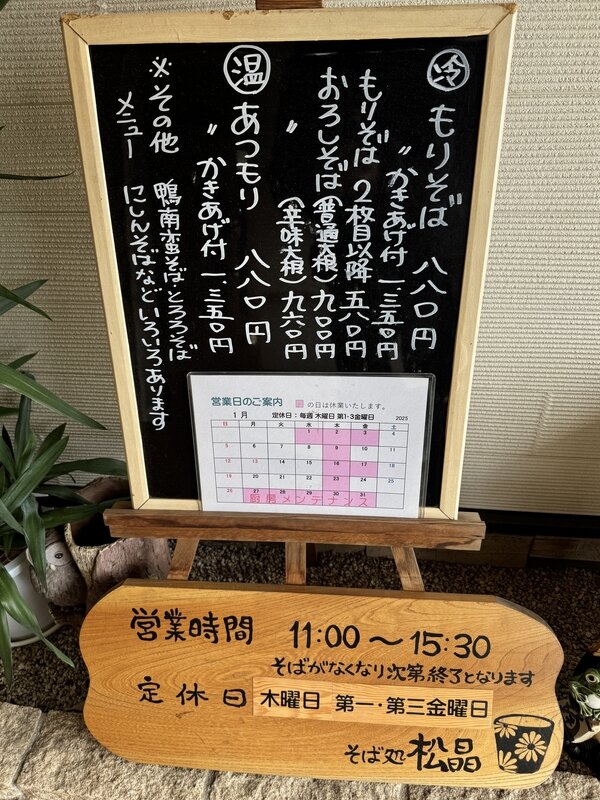 冷 もりそば 八八〇円
〃 かきあげ付 一、三五〇円
もりそば 2枚目以降 五八〇円
おろしそば(普通大根) 九〇〇円
〃 (辛味大根) 九六〇円
温 あつもり 八八〇円
〃 かきあげ付 一、三五〇円
※その他メニュー
鴨南蛮そばとろろそば
にしんそばなどいろいろあります
営業日のご案内
の日は休業いたします。
1月 定休日:毎週 木曜日 第1・3金曜日 2025
日 月 火 水 木 金 土
1 2 3 4
5 6 7 8 9 10 11
12 13 14 15 16 17 18
19 20 21 22 23 24 25
26 27 28 29 30 31
厨房メンテナンス
営業時間 11:00～15:30
そばがなくなり次第終了となります
定休日 木曜日 第一・第三金曜日
そば処 松晶